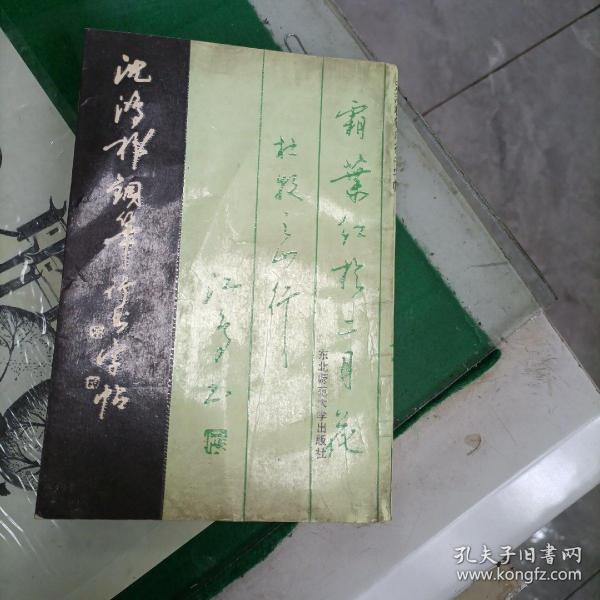 霜葉红於二月花
杜牧之山行
江鸟书
东北师范大学出版社
沈鸿根钢笔行书字帖
孔夫子旧书网
www.kongfz.com